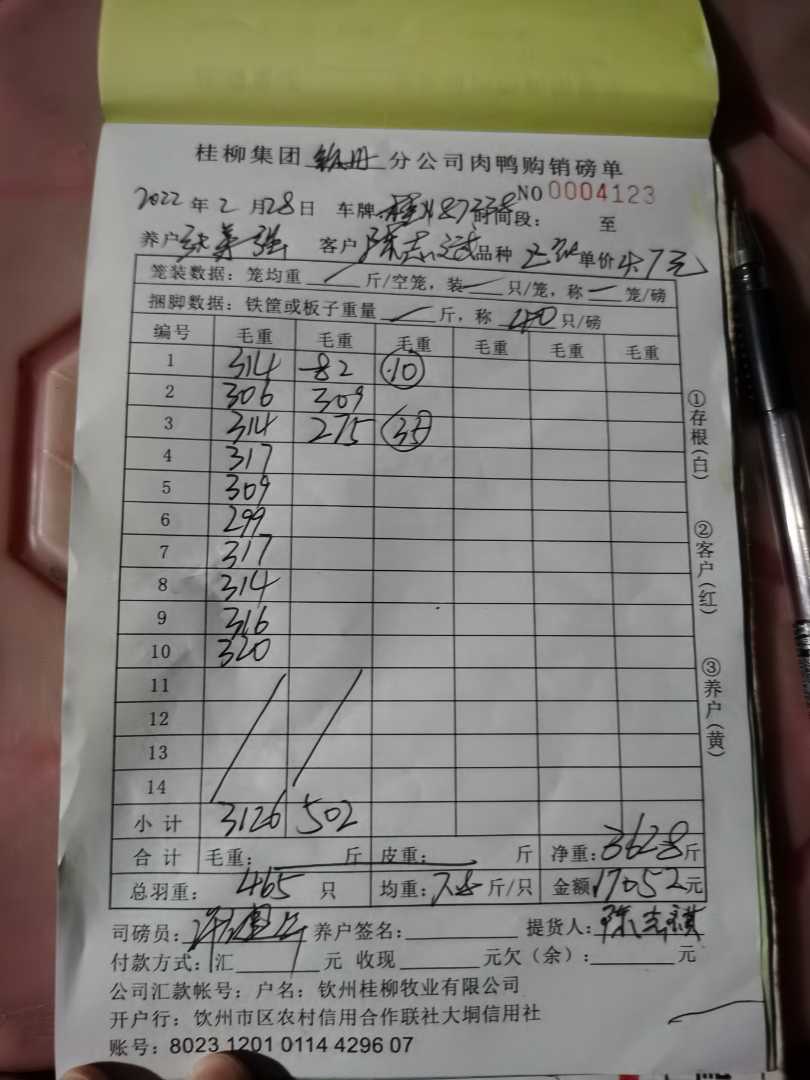 桂柳集团 钦州 分公司肉鸭购销磅单
NO 0004123
2022 年 2 月 28 日 车牌 时间段： 至
养户 强 客户 陈志斌 品种 单价 4.7元
笼装数据：笼均重 ／ 斤/空笼，装 一 只/笼，称 一 笼/磅
捆脚数据：铁筐或板子重量 ／ 斤，称 40 只/磅
编号 毛重 毛重 毛重 毛重 毛重 毛重
1 314 -82 10
2 306 309
3 314 275 35
4 317
5 309
6 299
7 317
8 314
9 316
10 320
11
12
13
14
小 计 3126 502
合 计 毛重： 斤 皮重： 斤 净重：3628 斤
总羽重： 465 只 均重：7.8 斤/只 金额 17052 元
司磅员： 养户签名： 提货人：陈志祺
付款方式：汇 元 收现 元欠（余）： 元
公司汇款帐号：户名：钦州桂柳牧业有限公司
开户行：饮州市区农村信用合作联社大垌信用社
账号：8023 1201 0114 4296 07
①存根（白）
②客户（红）
③养户（黄）